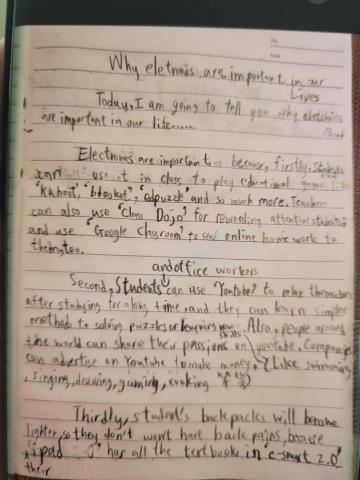 Why eletronics are important in our
Lives
Today, I am going to tell you why eletronics
are important in our life......
Electronics are important because, firstly, students
can use it in class to play educational games like
"Kahoot", "blooket", "edpuzzle" and so much more. Teachers
can also use "Class Dojo" for rewarding attentive students
and use "Google Classroom" to send online home work to
them too.
and office workers
Second, students can use Youtube to relax themselves
after studying for a long time and they can learn simpler
methods to solving puzzles or learning new skills. Also, people around
the world can share their passions on youtube. Companies
can advertise on Youtube to make money. (Like swimming
, singing, drawing, gaming, cooking
Thirdly, student's backpacks will become
lighter, so they don't wont have back pains, because
ipad has all the textbooks in "e-smart 2.0"
their